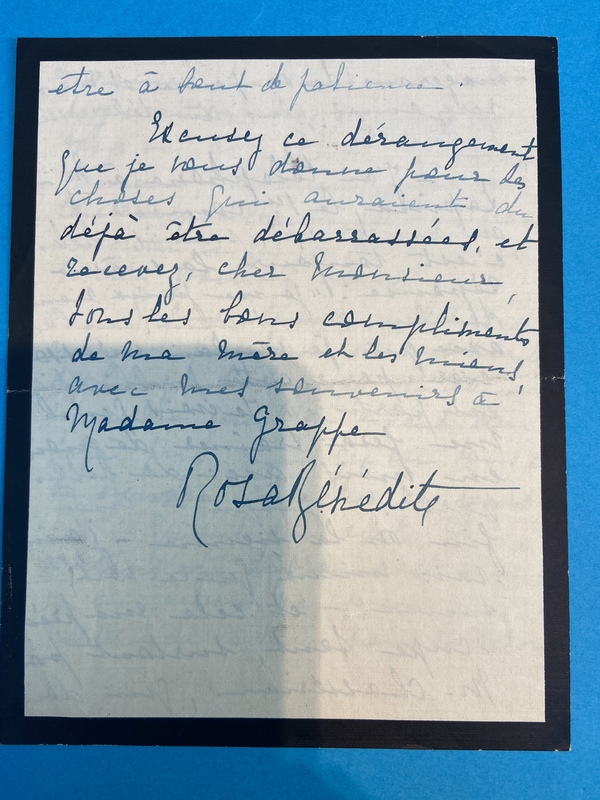 être à bout de patience.
Excusez ce dérangement
que je vous donne pour des
choses qui auraient du
déjà être débarrassées, et
recevez, cher Monsieur,
tous les bons compliments
de ma mère et les miens,
avec mes souvenirs à
Madame Grappe
Rosa Bénédite